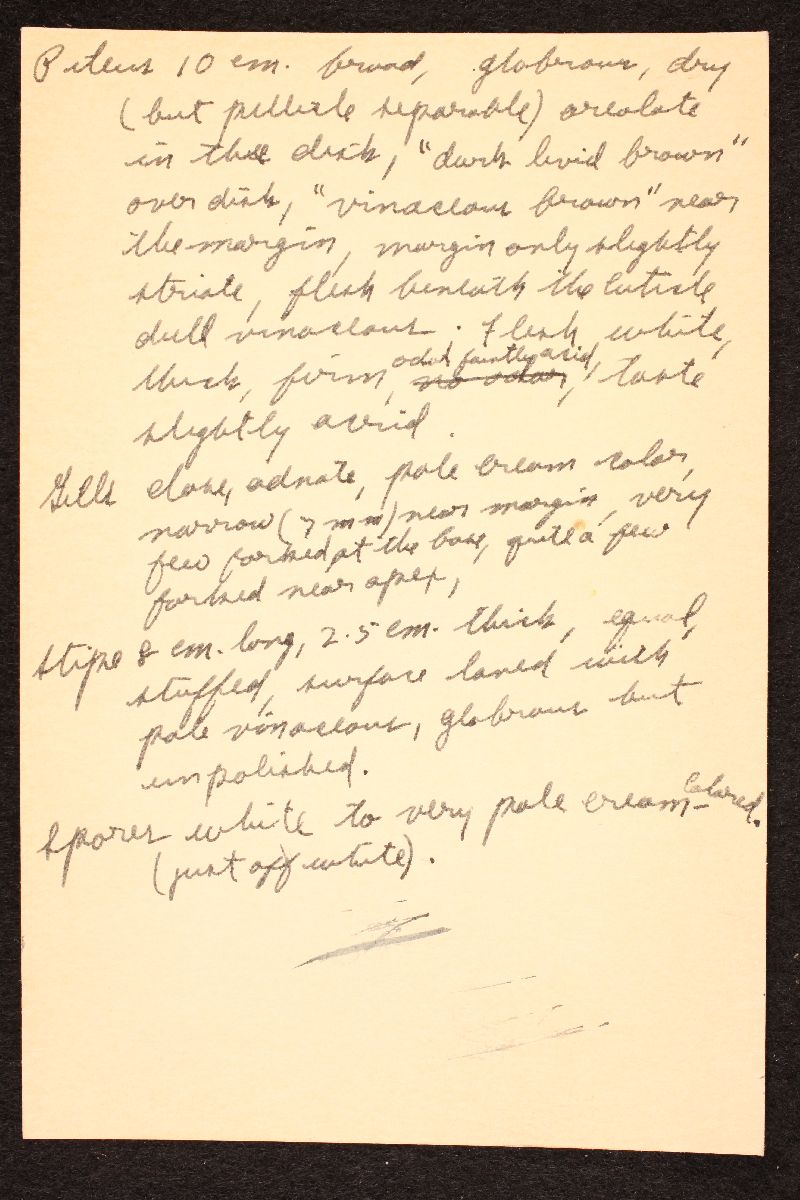 Pileus 10 cm. broad, glabrous, dry
(but pellicle separable) areolate
in the disk, "dark livid brown"
over disk, "vinaceous brown" near
the margin, margin only slightly
striate, flesh beneath the cuticle
dull vinaceous. Flesh white,
thick, firm, odor faintly acid, no odor, taste
slightly acrid.
Gills close, adnate, pale cream color,
narrow (7 mm) near margin, very
few forked at the base, quite a few
forked near apex,
Stipe 8 cm. long, 2.5 cm. thick, equal,
stuffed, surface laved with
pale vinaceous, glabrous but
unpolished.
Spores white to very pale cream-colored.
(just off white).